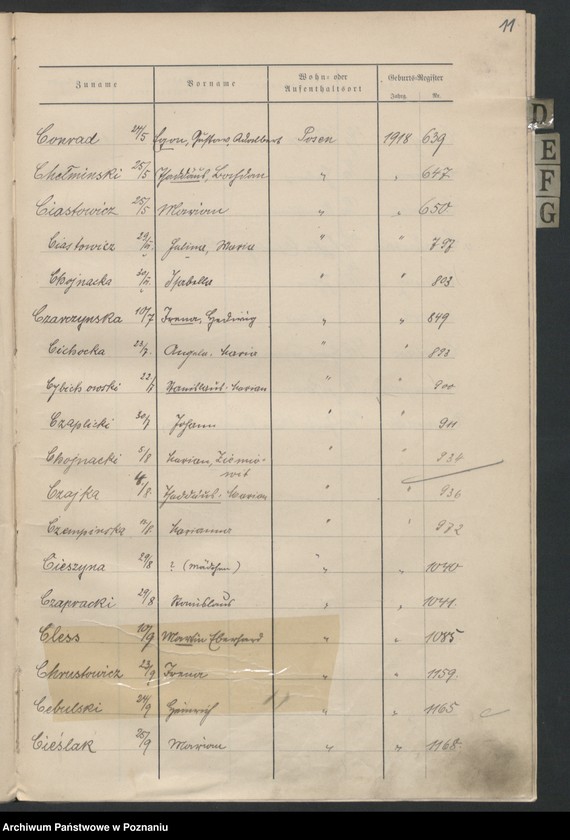 11
Zuname Vorname Wohn- oder Aufenthaltsort Geburts-Register
Jahrg. Nr.
Conrad 24/5 Egon, Gustav Adalbert Posen 1918 639
Chełminski 25/5 Thaddäus, Bochdan " " 647
Ciastowicz 25/5 Marian " " 650
Ciastowicz 29/VI. Halina, Maria " " 797
Chojnacka 30/VI. Isabella " " 803
Czarczynska 10/7 Irena, Hedwig " " 849
Cichocka 23/7. Angela, Maria " " 893
Cybichowski 22/7 Stanislaus, Marian " " 900
Czaplicki 30/7 Johann " " 911
Chojnacki 5/8 Marian, Ziemowit " " 934
Czajka /8. Thaddäus, Marian " " 936
Czempinska 11/8 Marianna " " 972
Cieszyna 29/8 ? (Mädchen) " " 1040
Czapracki 29/8 Stanislaus " " 1041
Cless 10/9 Martin Eberhard " " 1085
Chrustowicz 23/9 Irena " " 1159.
Cebulski 24/9 Heinrich " " 1165
Cieślak 25/9 Marian " " 1168
D
E
F
G
Archiwum Państwowe w Poznaniu